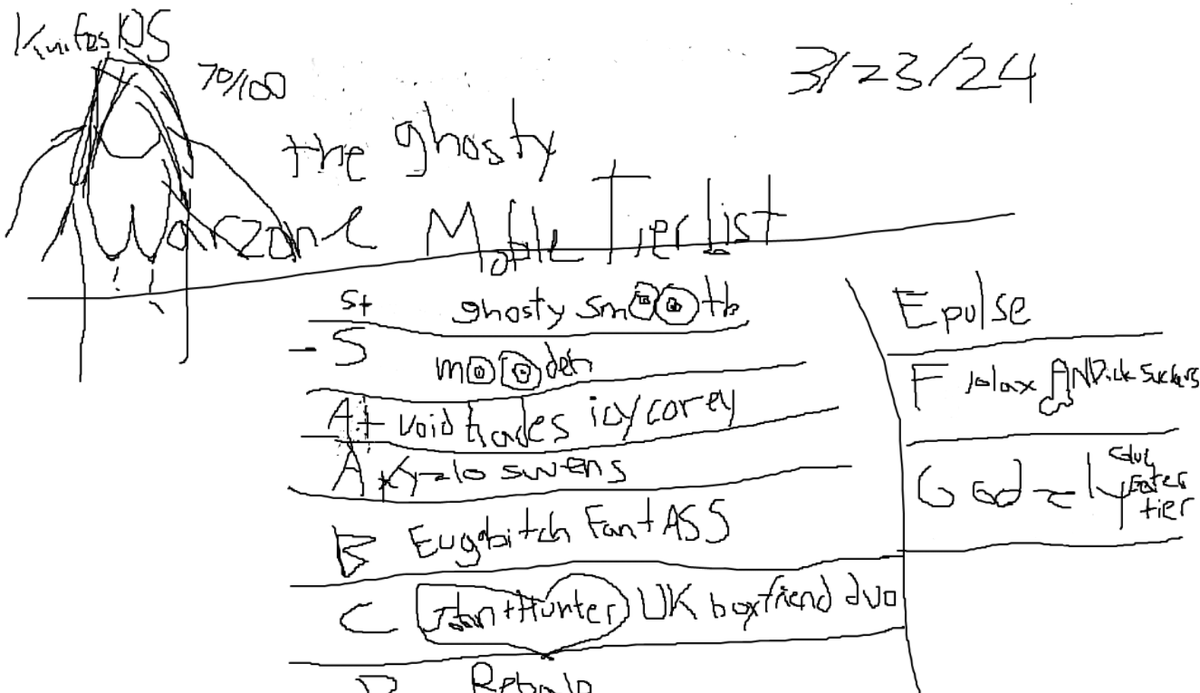 70/100
3/23/24
the ghosty
Warzone Mobile Tier List
S+ ghosty smooth
S mooden
A+ void trades icy corey
A xyzlo swens
B Eugbitch FantASS
C John+Hunter UK boyfriend duo
D
E pulse
F Jolax AN Dick Suckers
G
Eater
tier